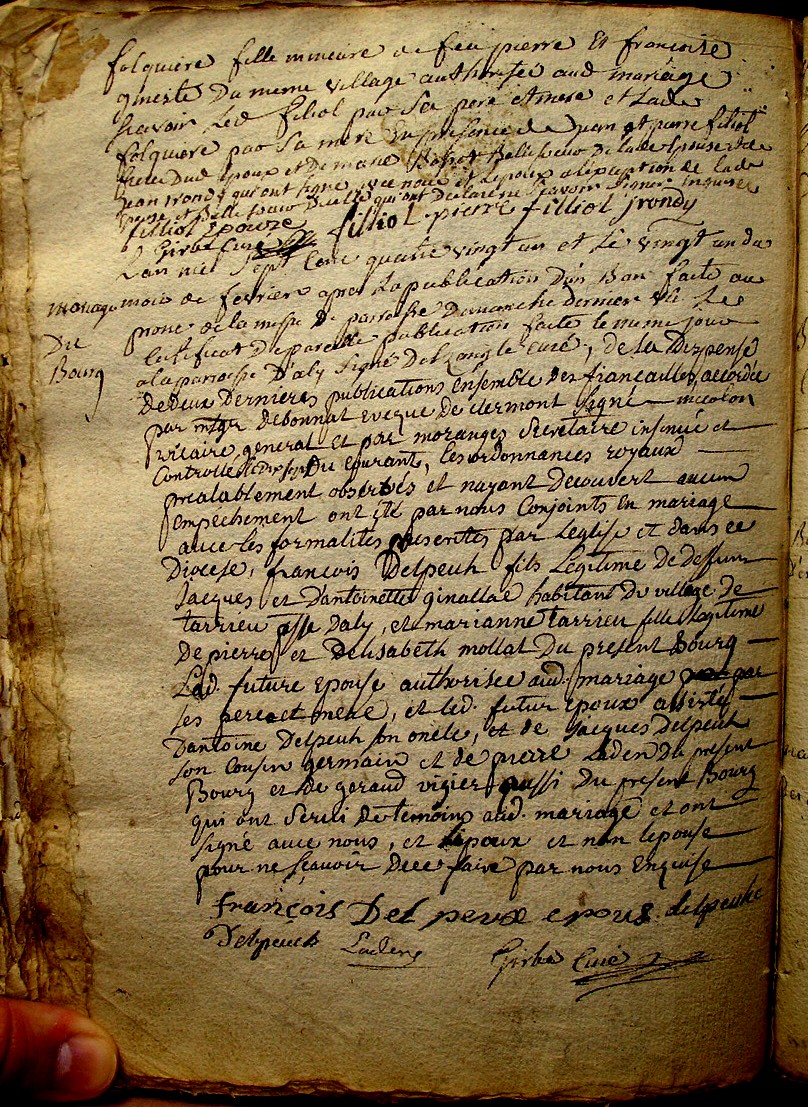 folquiere fille mineure de feu pierre Et francoise
du meme village authorisée aud mariage
scavoir Led filiol par ses pere et mere et Lade
folquiere par sa mere En presence de Juan et pierre filiol
frere Dud Epoux et de marie Belle soeur de lade Epouse et de
jean jrondy qui ont signé avec nous et Lepoux a lexception de lade
Epouse et Belle soeur qui ont declaré ne scavoir signer Enquises
filliol Epouze filliol pierre filliol jrondy
Girbe Curé
Lan mil sept Cent quatre vingt un et le vingt un du
mariage
Du
Bourg
mois de fevrier apres La publication D'un Ban faite au
prone de la messe De parroisse Dimanche dernier vû Le
Certificat De pareille publication faite le meme jour
a la parroisse D'aly signé Delzangle curé, de la Dispense
de deux Dernieres publications Ensemble des fiancailles, accordée
par mgr debonnat Eveque De clermont signé micolon
vicaire general et par moranges secretaire insinué et
Controllé Du courant, les ordonnances royaux
prealablement observés et nayant decouvert aucun
empéchement ont eté par nous conjoints En mariage
avec les formalités prescrites par Leglise et dans ce
Diocese, francois Delpeuh fils Légitime De deffunt
Jacques et Dantoinette ginallac habitant du village de
tarrieu psse Daly, et marianne tarrieu fille Legitime
De pierre et Delisabeth mollat Du present Bourg
Lad. future epouse authorisée aud. mariage par
ses pere et mere, et led. futur epoux assisté
Dantoine Delpeuh son oncle, et de Jacques Delpeuh
son cousin germain et de pierre Laden Du present
Bourg et de geraud vigier aussi Du present Bourg
qui ont servi de temoins aud. mariage et ont
signé avec nous, et lepoux et non lepouse
pour ne sçavoir Decce faire par nous Enquise
françois Delpeux epous delpeuhe
Delpeuch Laden Girbe Curé